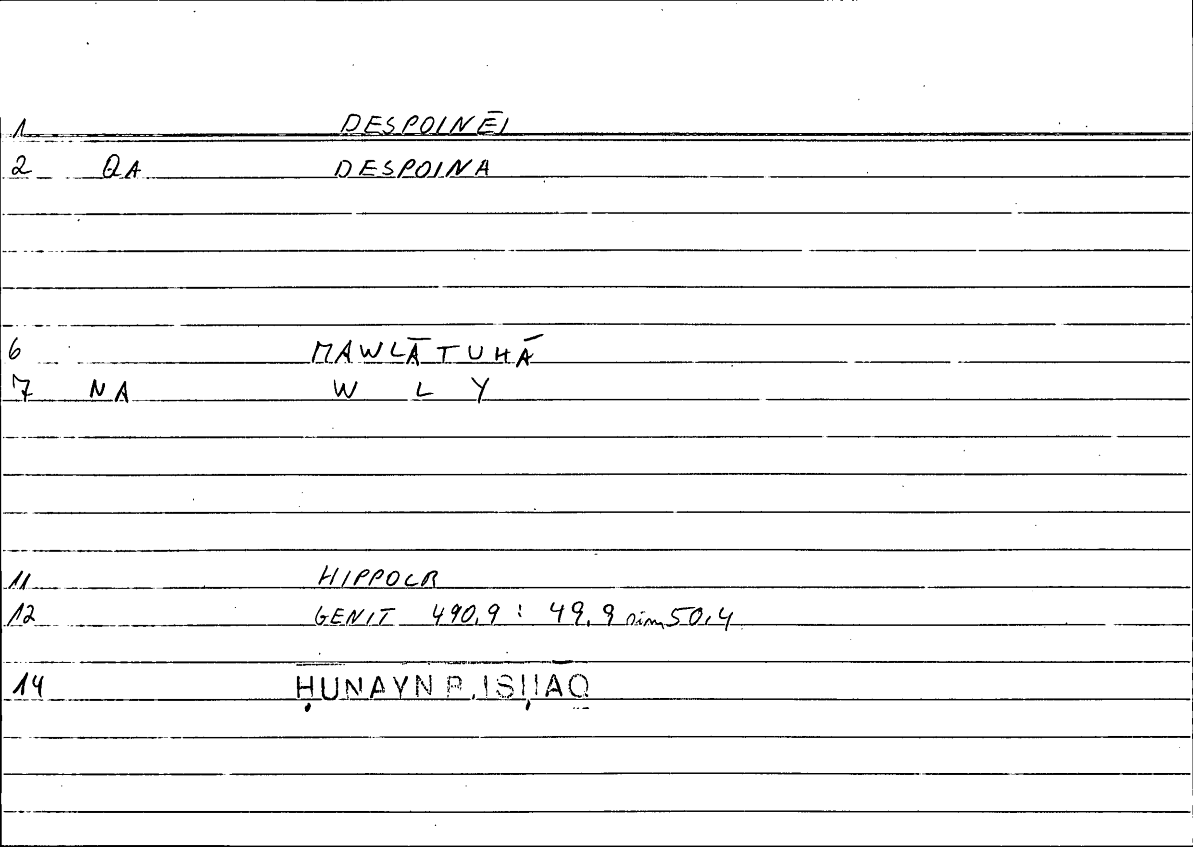 1 DESPOINĒI
2 QA DESPOINA
6 MAWLĀTUHĀ
7 NA W L Y
11 HIPPOCR
12 GENIT 490,9 : 49,9 sim 50,4
14 ḤUNAYN B. ISḤĀQ